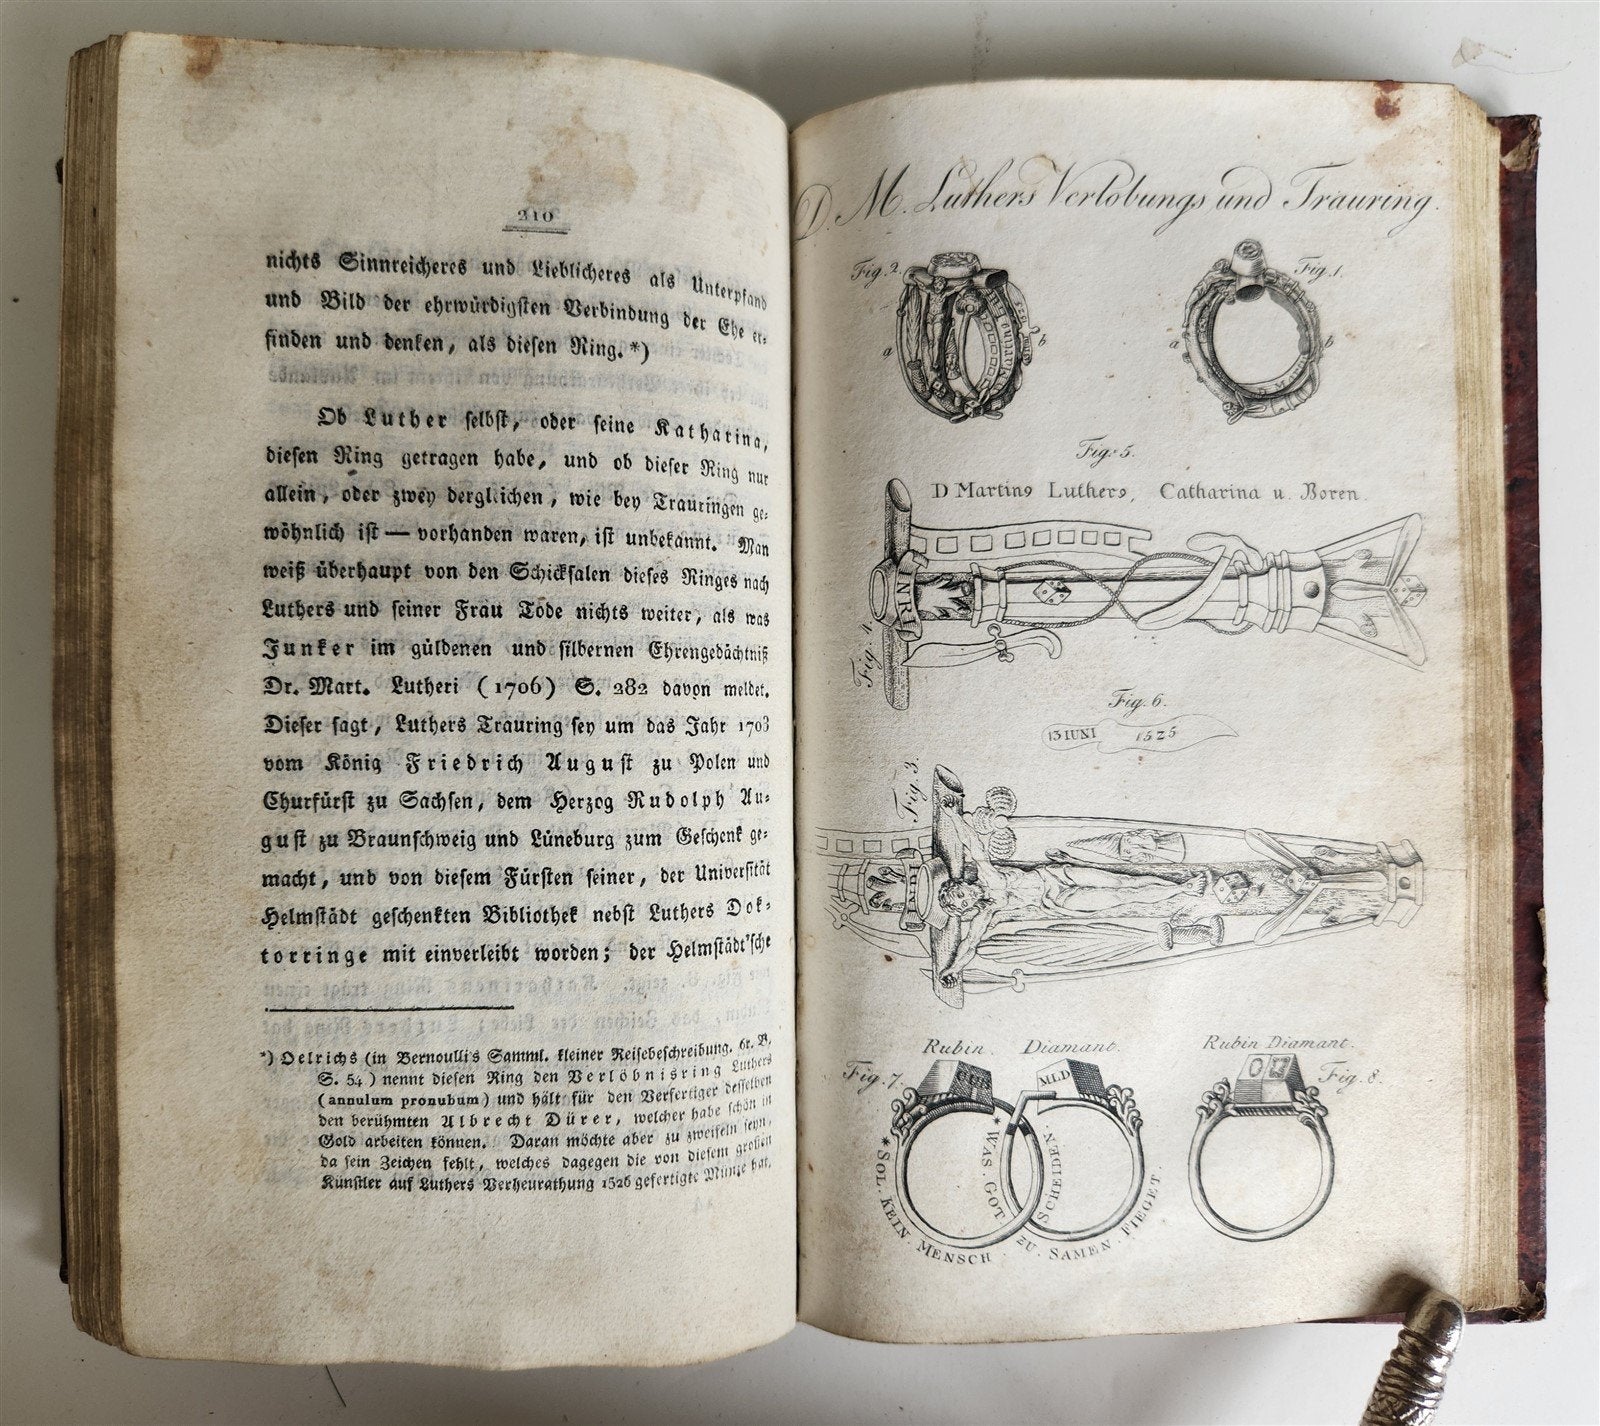 210
nichts Sinnreicheres und Lieblicheres als Unterpfand
und Bild der ehrwürdigsten Verbindung der Ehe er-
finden und denken, als diesen Ring.*)
Ob Luther selbst, oder seine Katharina,
diesen Ring getragen habe, und ob dieser Ring nur
allein, oder zwey dergleichen, wie bey Trauringen ge-
wöhnlich ist — vorhanden waren, ist unbekannt. Man
weiß überhaupt von den Schicksalen dieses Ringes nach
Luthers und seiner Frau Tode nichts weiter, als was
Junker im güldenen und silbernen Ehrengedächtniß
Dr. Mart. Lutheri (1706) S. 282 davon meldet.
Dieser sagt, Luthers Trauring sey um das Jahr 1703
vom König Friedrich August zu Polen und
Churfürst zu Sachsen, dem Herzog Rudolph Au-
gust zu Braunschweig und Lüneburg zum Geschenk ge-
macht, und von diesem Fürsten seiner, der Universität
Helmstädt geschenkten Bibliothek nebst Luthers Dok-
torringe mit einverleibt worden; der Helmstädt'sche
*) Oelrichs (in Bernoulli's Samml. kleiner Reisebeschreibung. 6r. B.
S. 54) nennt diesen Ring den Verlöbnisring Luthers
(annulum pronubum) und hält für den Verfertiger desselben
den berühmten Albrecht Dürer, welcher habe schön in
Gold arbeiten können. Daran möchte aber zu zweifeln seyn,
da sein Zeichen fehlt, welches dagegen die von diesem großen
Künstler auf Luthers Verheurathung 1526 gefertigte Münze hat.
D. M. Luthers Verlobungs und Trauring.
Fig. 2.
Fig. 1.
a
b
a
b
Fig. 5.
D Martino Luthero, Catharina u. Boren.
INRI
Fig. 4.
Fig. 6.
13 IUNI 1525
Fig. 3.
Rubin. Diamant.
Rubin Diamant.
Fig. 7.
MLD
Fig. 8.
* WAS. GOT
* SOL. KEIN. MENSCH.
ZU. SAMEN. FIEGET.
SCHEIDEN.